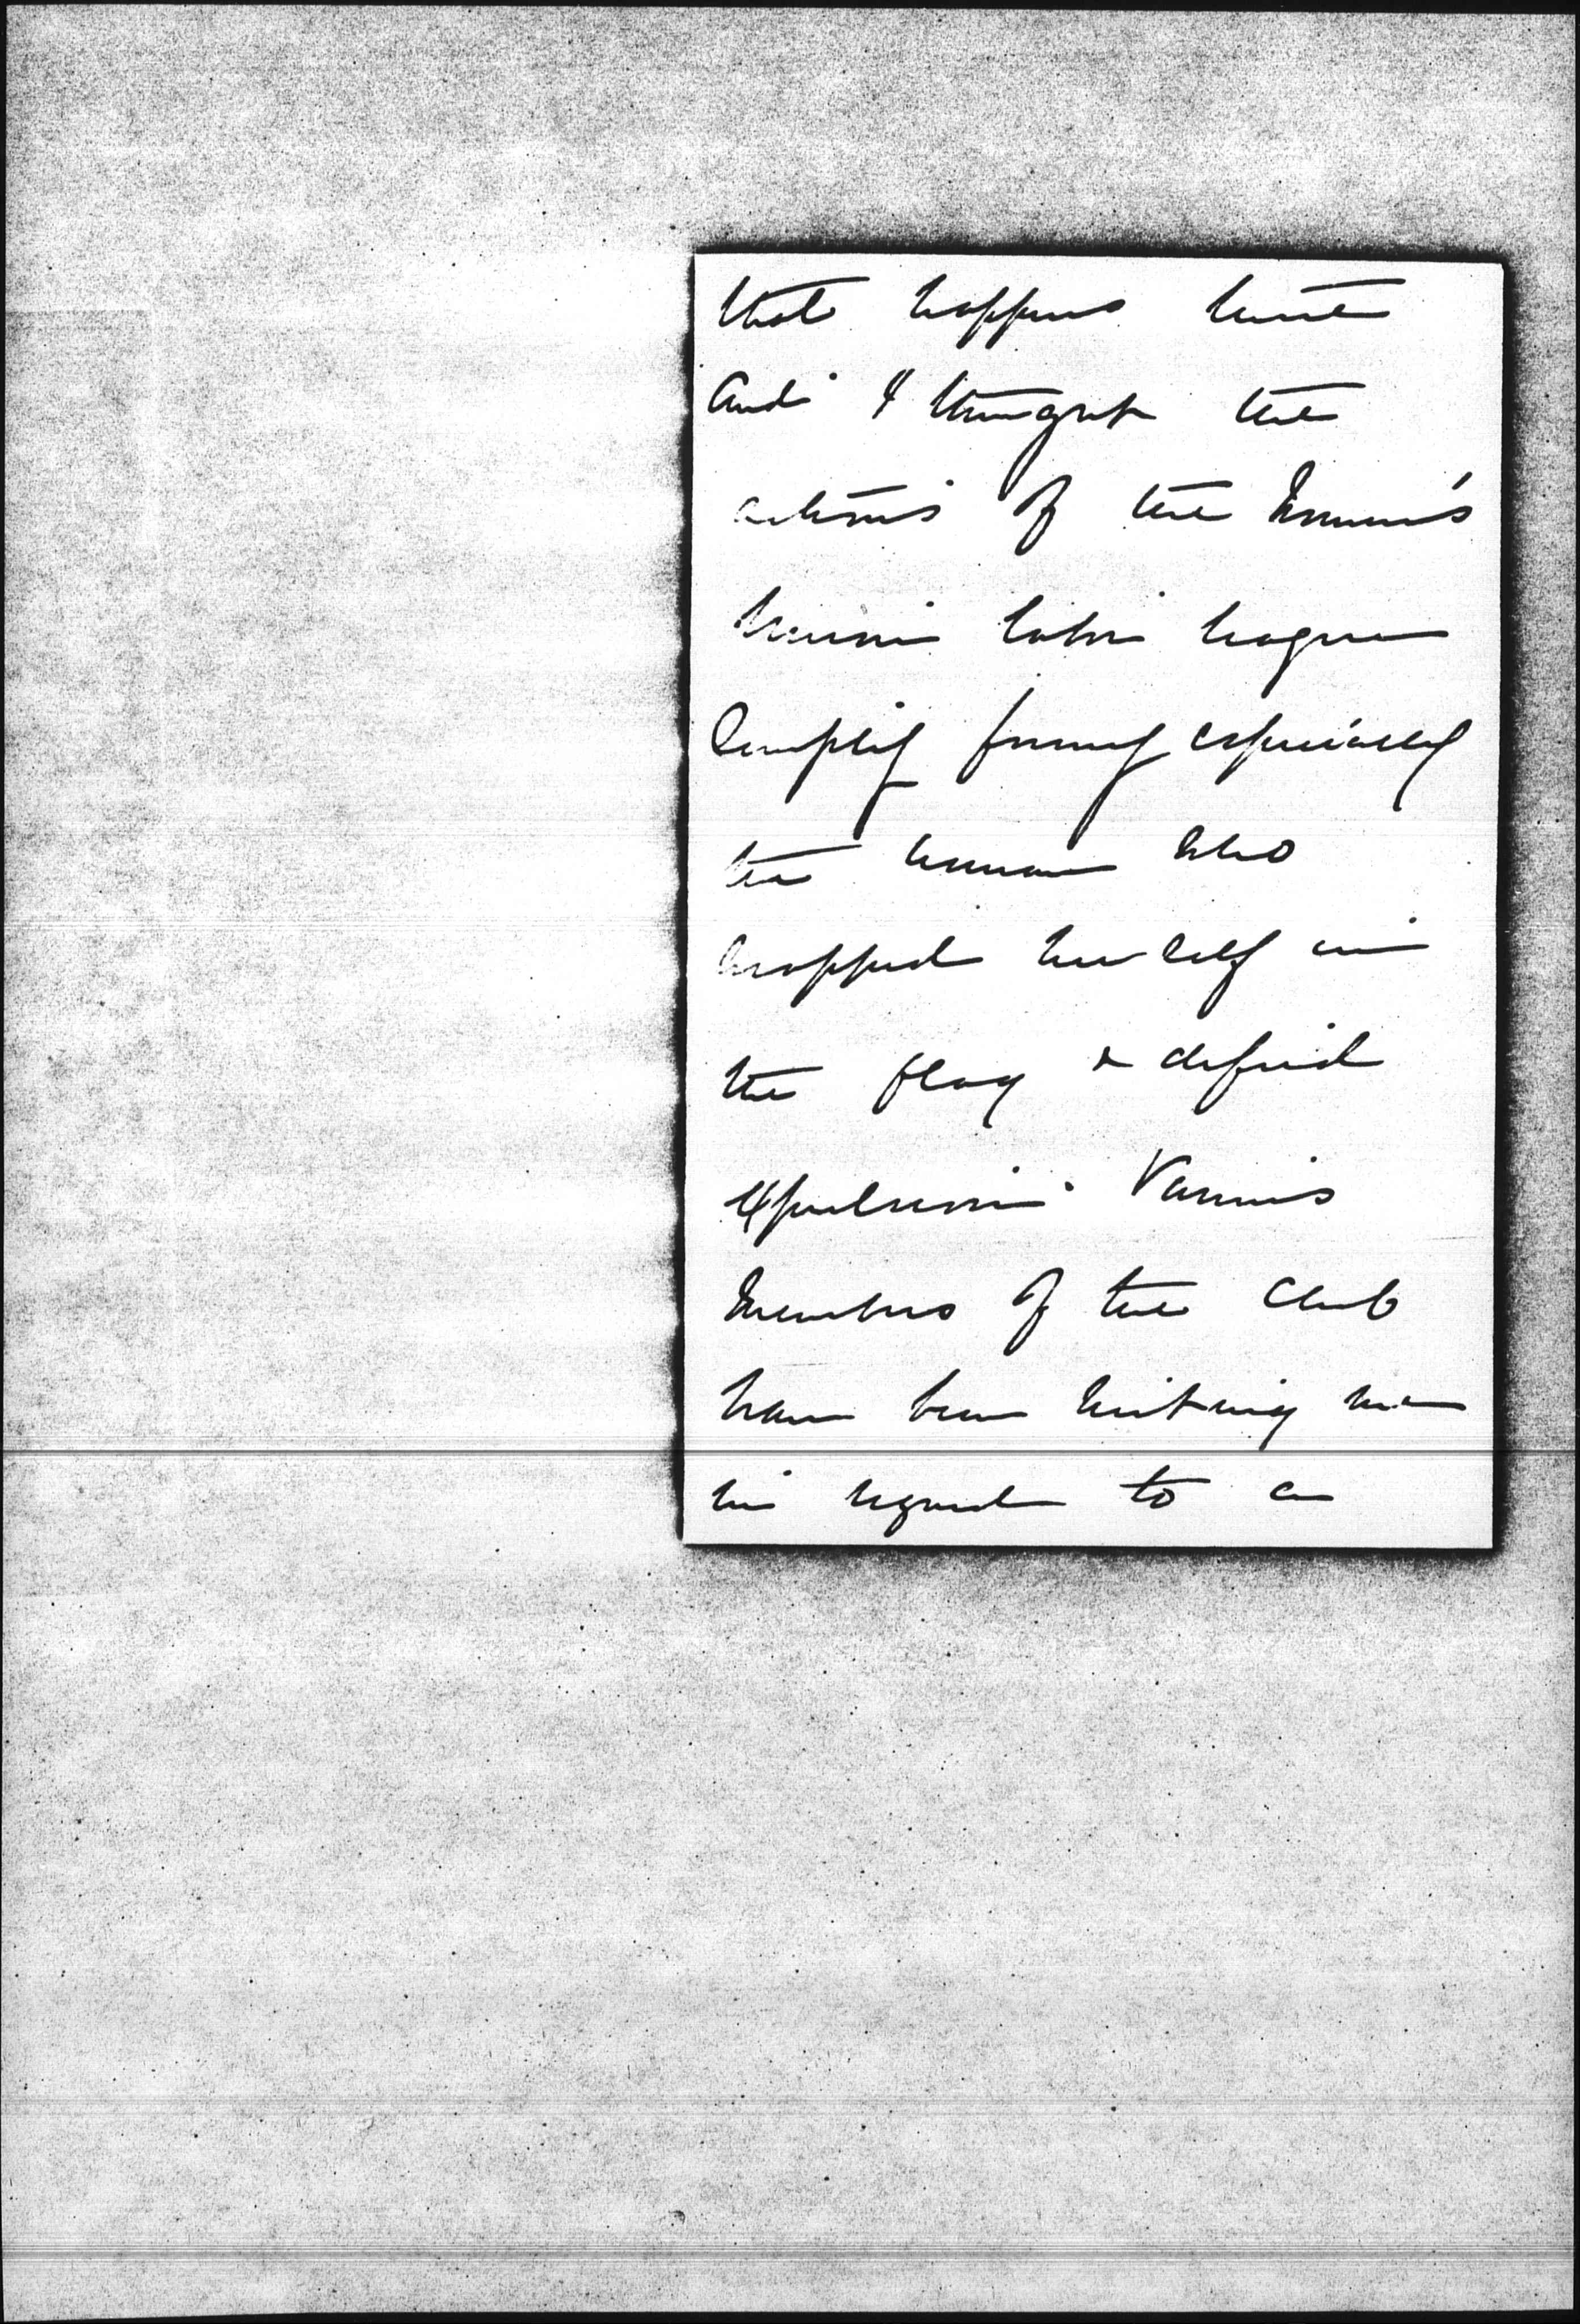 that happens here
and I thought the
actions of the Women's
Union Labor League
simply funny especially
the woman who
wrapped herself in
the flag & defied
expulsion. Various
members of the Club
have been writing me
in regard to a